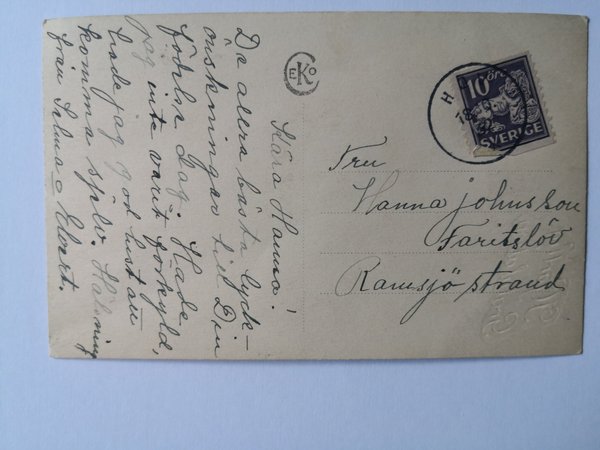 Kära Hanna!
De allra bästa lyck-
önskningar till Din
födelse Dag. Hade
jag inte varit förkyld,
hade jag god lust att
komma själv. Hälsning
från Selma o Evert.
EKO
10 ÖRE
SVERIGE
H
18
Fru
Hanna Johnsson
Faritslöv
Ramsjö strand